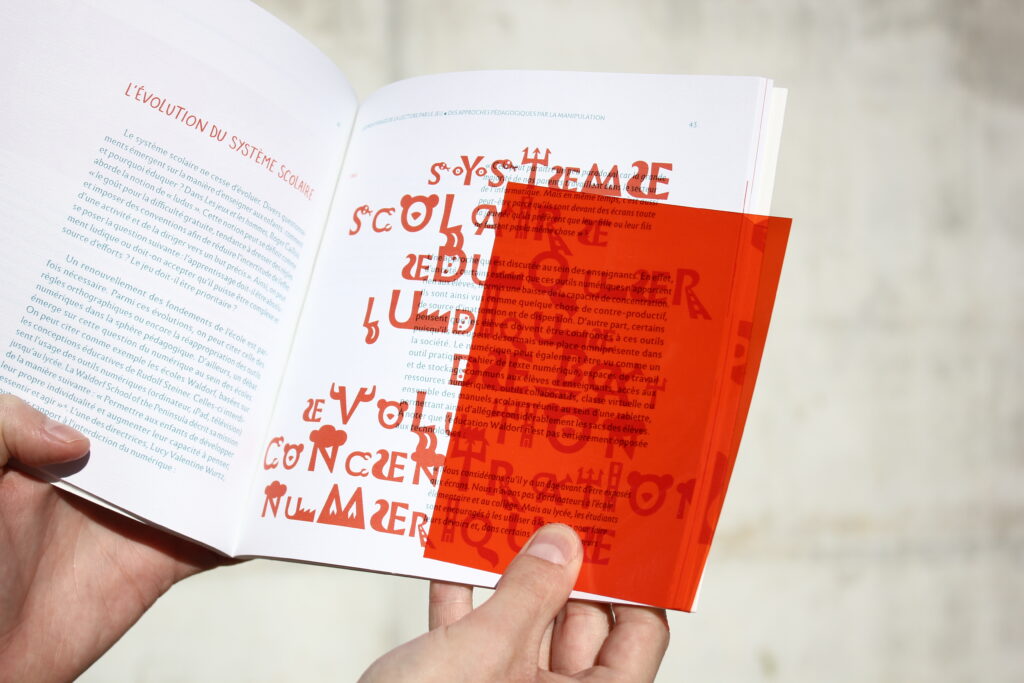 L'ÉVOLUTION DU SYSTÈME SCOLAIRE
Le système scolaire ne cesse d'évoluer. Divers questionne-
ments émergent sur la manière d'enseigner aux enfants : comment
et pourquoi éduquer ? Dans Les jeux et les hommes, Roger Caillois
aborde la notion de « ludus ». Cette notion peut se définir comme
« le goût pour la difficulté gratuite, tendance à dresser des règles
et imposer des conventions afin de réduire l'incertitude, de réfréner
d'une activité et de la diriger vers un but précis ». Ainsi, on peut
se poser la question suivante : l'apprentissage doit-il être complète-
ment ludique ou doit-on accepter qu'il puisse être complexe
source d'efforts ? Le jeu doit-il être prioritaire ?
Un renouvellement des fondements de l'école est par-
fois nécessaire. Parmi ces évolutions, on peut citer celle des
règles orthographiques ou encore la réappropriation des outils
numériques dans la sphère pédagogique. D'ailleurs, un débat
émerge sur cette question du numérique au sein des écoles.
On peut citer comme exemple les écoles Waldorf, basées sur
les conceptions éducatives de Rudolf Steiner. Celles-ci interdi-
sent l'usage des outils numériques (ordinateur, iPad, télévision)
jusqu'au lycée. La Waldorf School of the Peninsula décrit sa mission
de la manière suivante : « Permettre aux enfants de développer
leur propre individualité et augmenter leur capacité à penser,
sentir et agir »⁴. L'une des directrices, Lucy Valentine Wurtz,
rapport à l'interdiction du numérique :
DE LA LECTURE PAR LE JEU • DES APPROCHES PÉDAGOGIQUES PAR LA MANIPULATION
43
SYSTEME
SCOLAIRE
EDUQUER
LUD
EVOLUTION
CONCENTRATION
NUMERIQUE
paradoxal car le monde
de nos parents
Lens le secteur
de l'informatique. Mais en même temps, c'est aussi
peut-être parce qu'ils sont devant des écrans toute
la journée qu'ils préfèrent que leur fils ou leur fils
ne fassent pas la même chose »
Une approche qui est discutée au sein des enseignants. En effet,
certains estiment que ces outils numériques n'apportent
rien aux élèves, hormis une baisse de la capacité de concentration.
Ils sont ainsi vus comme quelque chose de contre-productif,
de source d'inattention et de dispersion. D'autre part, certains
pensent que les élèves doivent être confrontés à ces outils
puisqu'il prend désormais une place omniprésente dans
la société. Le numérique peut également être vu comme un
outil pratique : cahier de texte numérique, espaces de travail
et de stockage communs aux élèves et enseignants, accès aux
ressources numériques, outils collaborads, classe virtuelle ou
ensemble des manuels scolaires réunis au sein d'une tablette,
permettant ainsi d'alléger considérablement les sacs des élèves.
noter que l'éducation Waldorf n'est pas entièrement opposée
aux technologies
Nous considérons qu'il y a un âge avant d'être exposés
aux écrans. Nous n'avons pas d'ordinateurs à l'école
élémentaire et au collège. Mais au lycée, les étudiants
sont encouragés à les utiliser à la
devoirs et, dans certains